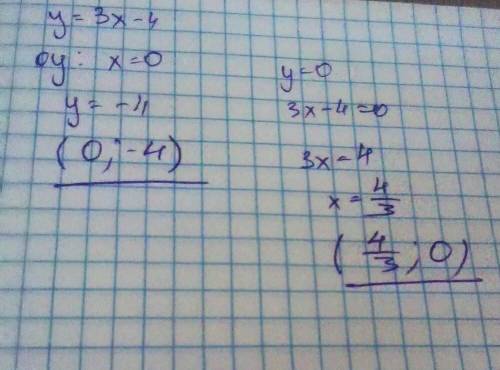 y = 3x - 4
oy: x = 0
y = -4
(0; -4)
y = 0
3x - 4 = 0
3x = 4
x = 4/3
(4/3; 0)